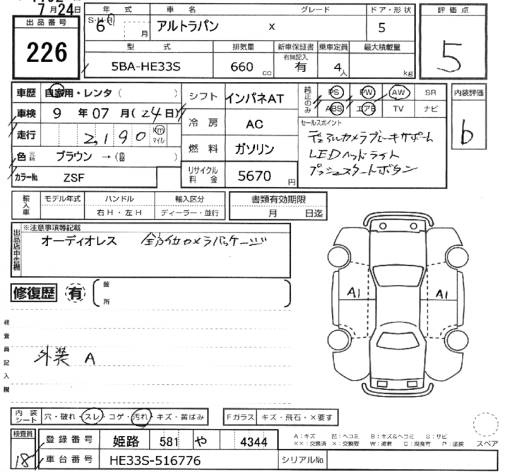 7月24日
出品番号
226
年式 車名 グレード ドア・形状
S・H・R 6 年 月 アルトラパン X 5
型式 排気量 新車保証書 有無記入 乗車定員 最大積載量
5BA-HE33S 660 cc 有 4人 kg
評価点
5
車歴 自家用・レンタ( )
車検 9年07月(24日)
走行 2,190 km マイル
色 ブラウン → ( )
カラーNo. ZSF
シフト インパネAT
冷房 AC
燃料 ガソリン
リサイクル料金 5670円
純正のみ
PS PW AW SR
ABS エアB TV ナビ
セールスポイント
デュアルカメラブレーキサポート
LEDヘッドライト
プッシュスタートボタン
内装評価
b
輸入車 モデル年式 ハンドル 輸入区分
年 右H・左H ディーラー・並行
書類有効期限
月 日迄
出品店申告欄
※注意事項等記載
オーディオレス 全方位カメラパッケージ
修復歴 有 箇所
検査員記入欄
外装 A
A1
A1
内装シート 穴・破れ・スレ・コゲ・汚れ・キズ・黄ばみ
Fガラス キズ・飛石・×要す
検査員
18
登録番号 姫路 581 や 4344
車台番号 HE33S-516776 シリアルNo.
A:キズ E:ヘコミ B:キズ&ヘコミ S:サビ
××:交換済 ×:交換要 W:波者 C:腐食有 P:塗装
スペア